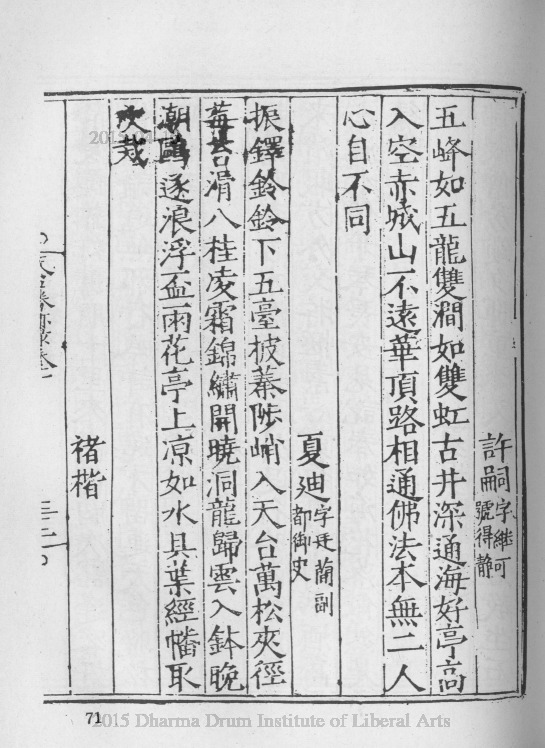 許嗣 字繼可
號得靜
五峰如五龍雙澗如雙虹古井深通海好亭高
入空赤城山不遠華頂路相通佛法本無二人
心自不同
夏廸 字廷蕳副
都御史
振鐸鈴鈴下五臺披蓁陟峭入天台萬松夾徑
莓苔滑八桂凌霜錦繡開曉洞龍歸雲入鉢晚
潮鷗逐浪浮盃雨花亭上凉如水具葉經幡取
次裁
褚楷
71
2015 Dharma Drum Institute of Liberal Arts